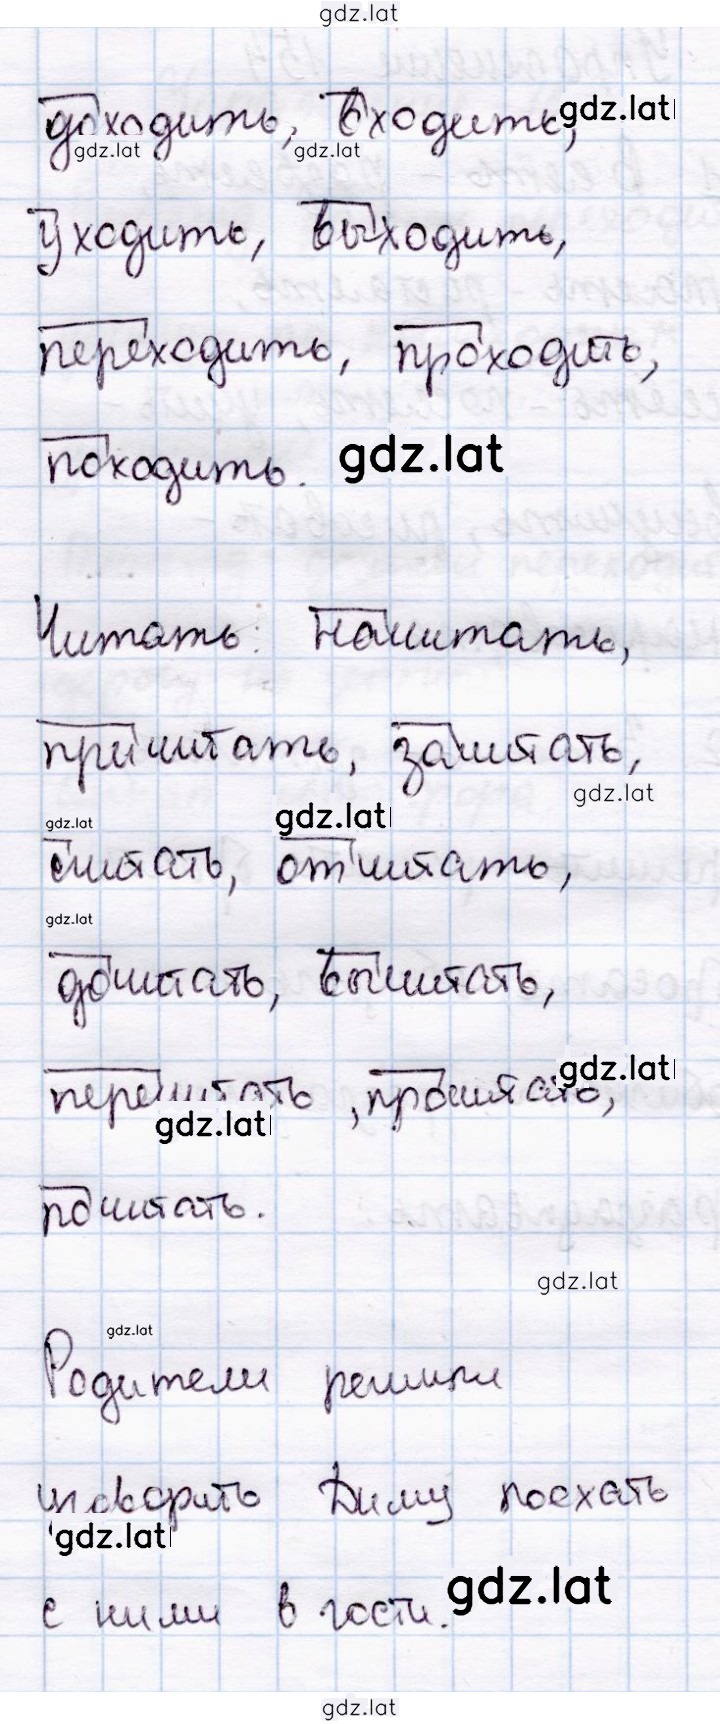 gdz.lat
доходить, входить, gdz.lat
gdz.lat gdz.lat
уходить, выходить,
переходить, проходить,
походить. gdz.lat
Читать: начитать,
причитать, зачитать,
gdz.lat
gdz.lat gdz.lat
считать, отчитать,
gdz.lat
дочитать, вычитать,
gdz.lat
перечитать, прочитать,
gdz.lat
почитать.
gdz.lat
gdz.lat
Родители решили
уговорить Диму поехать
gdz.lat
с ними в гости. gdz.lat
gdz.lat